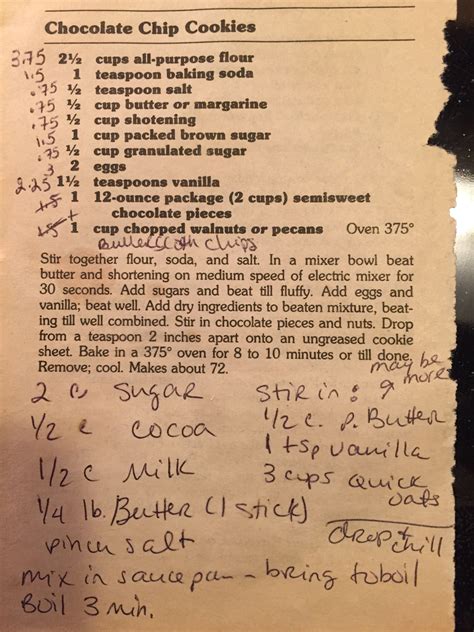 Chocolate Chip Cookies
3.75 2½ cups all-purpose flour
1.5 1 teaspoon baking soda
.75 ½ teaspoon salt
.75 ½ cup butter or margarine
.75 ½ cup shotening
1.5 1 cup packed brown sugar
.75 ½ cup granulated sugar
3 2 eggs
2.25 1½ teaspoons vanilla
1.5 1 12-ounce package (2 cups) semisweet
chocolate pieces
1.5 + 1 cup chopped walnuts or pecans Oven 375°
Butterscoth chips
Stir together flour, soda, and salt. In a mixer bowl beat
butter and shortening on medium speed of electric mixer for
30 seconds. Add sugars and beat till fluffy. Add eggs and
vanilla; beat well. Add dry ingredients to beaten mixture, beat-
ing till well combined. Stir in chocolate pieces and nuts. Drop
from a teaspoon 2 inches apart onto an ungreased cookie
sheet. Bake in a 375° oven for 8 to 10 minutes or till done.
Remove; cool. Makes about 72.
may be
more
2 c Sugar
1/2 c cocoa
1/2 c Milk
1/4 lb. Butter (1 stick)
pinch salt
stir in:
1/2 c. p. Butter
1 tsp vanilla
3 cups quick
oats
drop +
chill
mix in sauce pan - bring to boil
Boil 3 min.